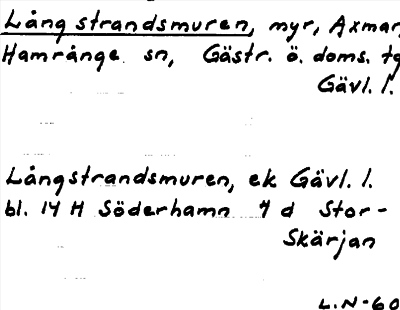 Långstrandsmuren, myr, Axmar,
Hamrånge sn, Gästr. ö. doms. tg
Gävl. l.
Långstrandsmuren, ek Gävl. l.
bl. 14 H Söderhamn 4 d Stor-
Skärjan
L.N-60